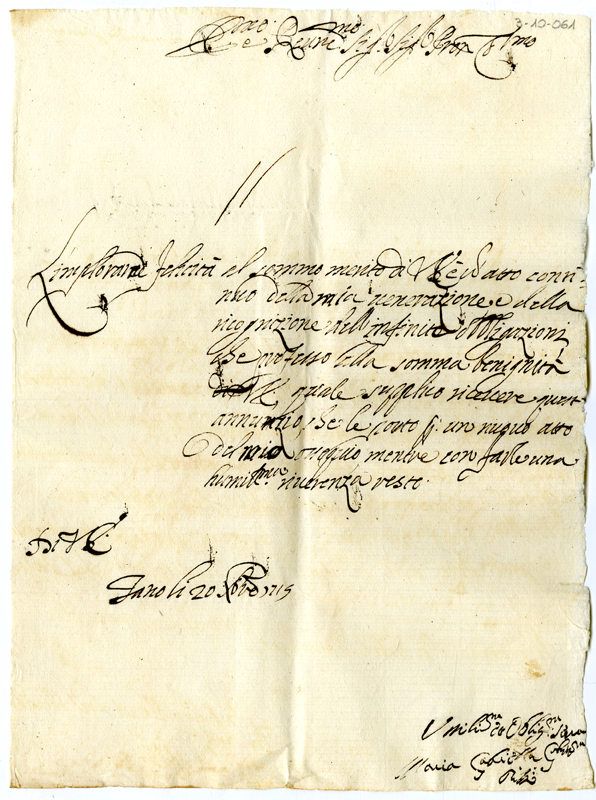 3-10-061
e Reu.mo Sig.r Sig.r Pron
L'implorare felicità al sommo merito di V.E. è dato conti-
nuo della mia ueneratione, e della
ricognizione dell'infinite obligazioni
che professo alla somma benignità
di V.E. quale supplico riceuere quest
annuntio, che le porto p. un nuouo atto
del mio ossequio mentre con farle una
humilissima riuerenza resto.
Di V.E.
Fano li 20
Umil.ma et Oblig.ma Serua
Maria